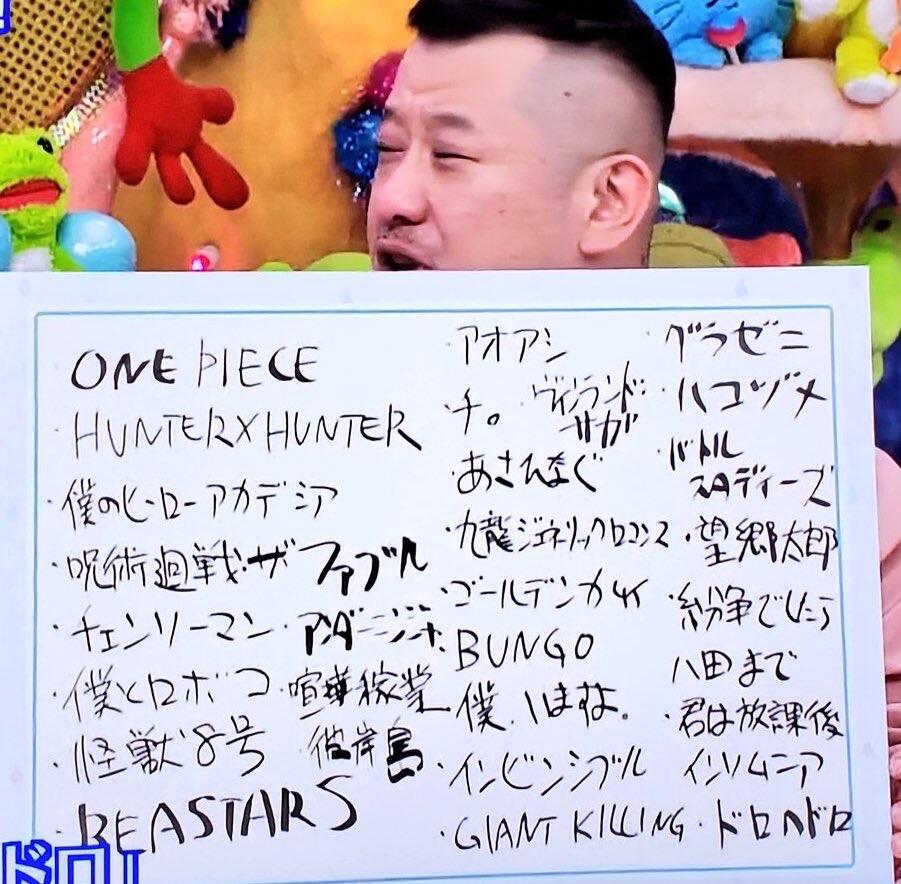 ・ONE PIECE
・HUNTER×HUNTER
・僕のヒーローアカデミア
・呪術廻戦・ザファブル
・チェンソーマン・アンダーニンジャ
・僕とロボコ・喧嘩稼業
・怪獣8号 彼岸島
・BEASTARS
・アオアシ
・チ。・ヴィンランド・サガ
・あさひなぐ
・九龍ジェネリックロマンス
・ゴールデンカムイ
・BUNGO
・僕、いますよ。
・インビンシブル
・GIANT KILLING
・グラゼニ
・ハコヅメ
・バトルスタディーズ
・望郷太郎
・紛争でしたら
八田まで
・君は放課後
インソムニア
・ドロヘドロ
ドロ！